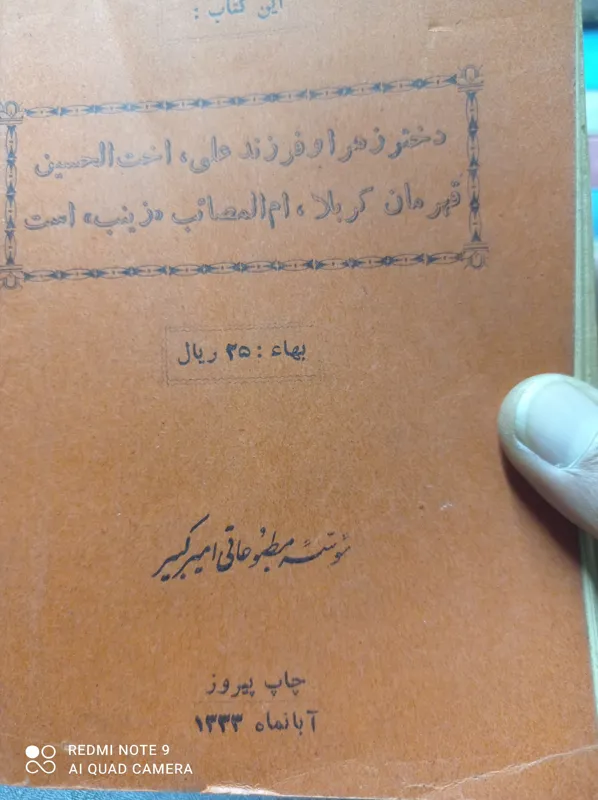 این کتاب :
دختر زهرا و فرزند علی، اخت الحسین
قهرمان کربلا، ام المصائب «زینب» است
بهاء : ۳۵ ریال
مؤسسه مطبوعاتی امیرکبیر
چاپ پیروز
آبانماه ۱۳۳۳
REDMI NOTE 9
AI QUAD CAMERA